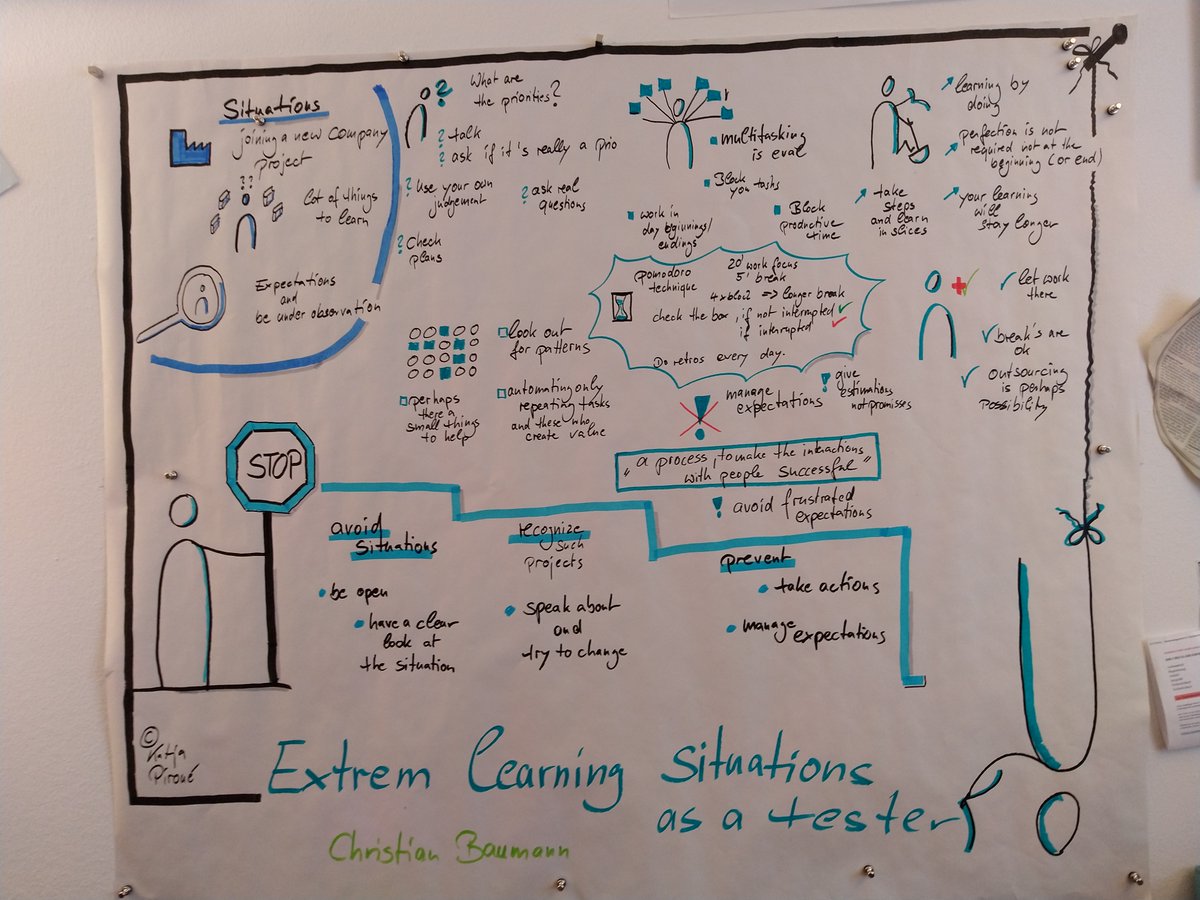 Situations
joining a new company
project
??
lot of things
to learn
Expectations
and
be under observation
?
What are
the priorities?
? talk
? ask if it's really a prio
? use your own
judgement
? ask real
questions
? Check
plans
multitasking
is eval
Block
you tasks
work in
day beginnings/
endings
Block
productive
time
learning by
doing
perfection is not
required not at the
beginning (or end)
take
steps
and learn
in slices
your learning
will
stay longer
pomodoro
technique
20' work focus
5' break
4xbloc => longer break
check the box, if not interrupted ✓
if interrupted ✓
Do retros every day.
✓ let work
there
✓ break's are
ok
✓ outsourcing
is perhaps
possibility
look out
for patterns
perhaps
there a
small things
to help
automating only
repeating tasks
and these who
create value
!
manage
expectations
! give
estimations
not promisses
"a process, to make the interactions
with people successful"
! avoid frustrated
expectations
STOP
avoid
situations
be open
have a clear
look at
the situation
recognize
such
projects
speak about
and
try to change
prevent
take actions
manage expectations
© Katja
Piroué
Extrem learning situations
as a tester
Christian Baumann